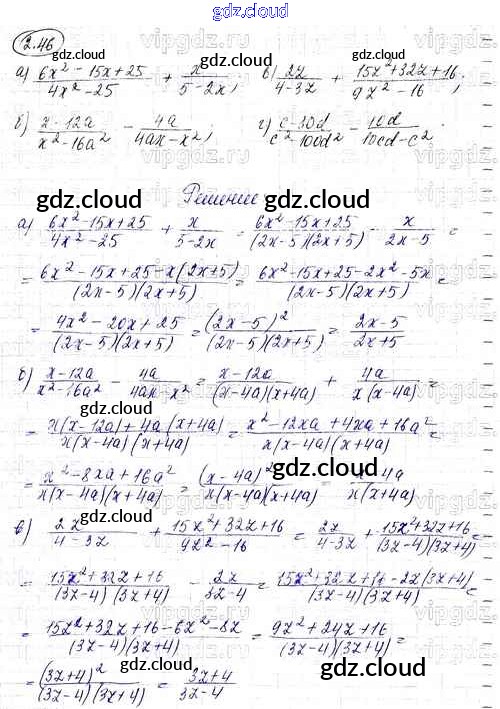 gdz.cloud
2.46
а) (6x² − 15x + 25)/(4x² − 25) + x/(5 − 2x); в) 2z/(4 − 3z) + (15z² + 32z + 16)/(9z² − 16);
б) (x − 12a)/(x² − 16a²) − 4a/(4ax − x²); г) (c − 30d)/(c² − 100d²) − 10d/(10cd − c²)
Решение
а) (6x² − 15x + 25)/(4x² − 25) + x/(5 − 2x) = (6x² − 15x + 25)/((2x − 5)(2x + 5)) − x/(2x − 5) =
= (6x² − 15x + 25 − x(2x + 5))/((2x − 5)(2x + 5)) = (6x² − 15x + 25 − 2x² − 5x)/((2x − 5)(2x + 5)) =
= (4x² − 20x + 25)/((2x − 5)(2x + 5)) = (2x − 5)²/((2x − 5)(2x + 5)) = (2x − 5)/(2x + 5)
б) (x − 12a)/(x² − 16a²) − 4a/(4ax − x²) = (x − 12a)/((x − 4a)(x + 4a)) + 4a/(x(x − 4a)) =
= (x(x − 12a) + 4a(x + 4a))/(x(x − 4a)(x + 4a)) = (x² − 12xa + 4xa + 16a²)/(x(x − 4a)(x + 4a)) =
= (x² − 8xa + 16a²)/(x(x − 4a)(x + 4a)) = (x − 4a)²/(x(x − 4a)(x + 4a)) = (x − 4a)/(x(x + 4a))
в) 2z/(4 − 3z) + (15z² + 32z + 16)/(9z² − 16) = 2z/(4 − 3z) + (15z² + 32z + 16)/((3z − 4)(3z + 4)) =
= (15z² + 32z + 16)/((3z − 4)(3z + 4)) − 2z/(3z − 4) = (15z² + 32z + 16 − 2z(3z + 4))/((3z − 4)(3z + 4)) =
= (15z² + 32z + 16 − 6z² − 8z)/((3z − 4)(3z + 4)) = (9z² + 24z + 16)/((3z − 4)(3z + 4)) =
= (3z + 4)²/((3z − 4)(3z + 4)) = (3z + 4)/(3z − 4)
gdz.cloud